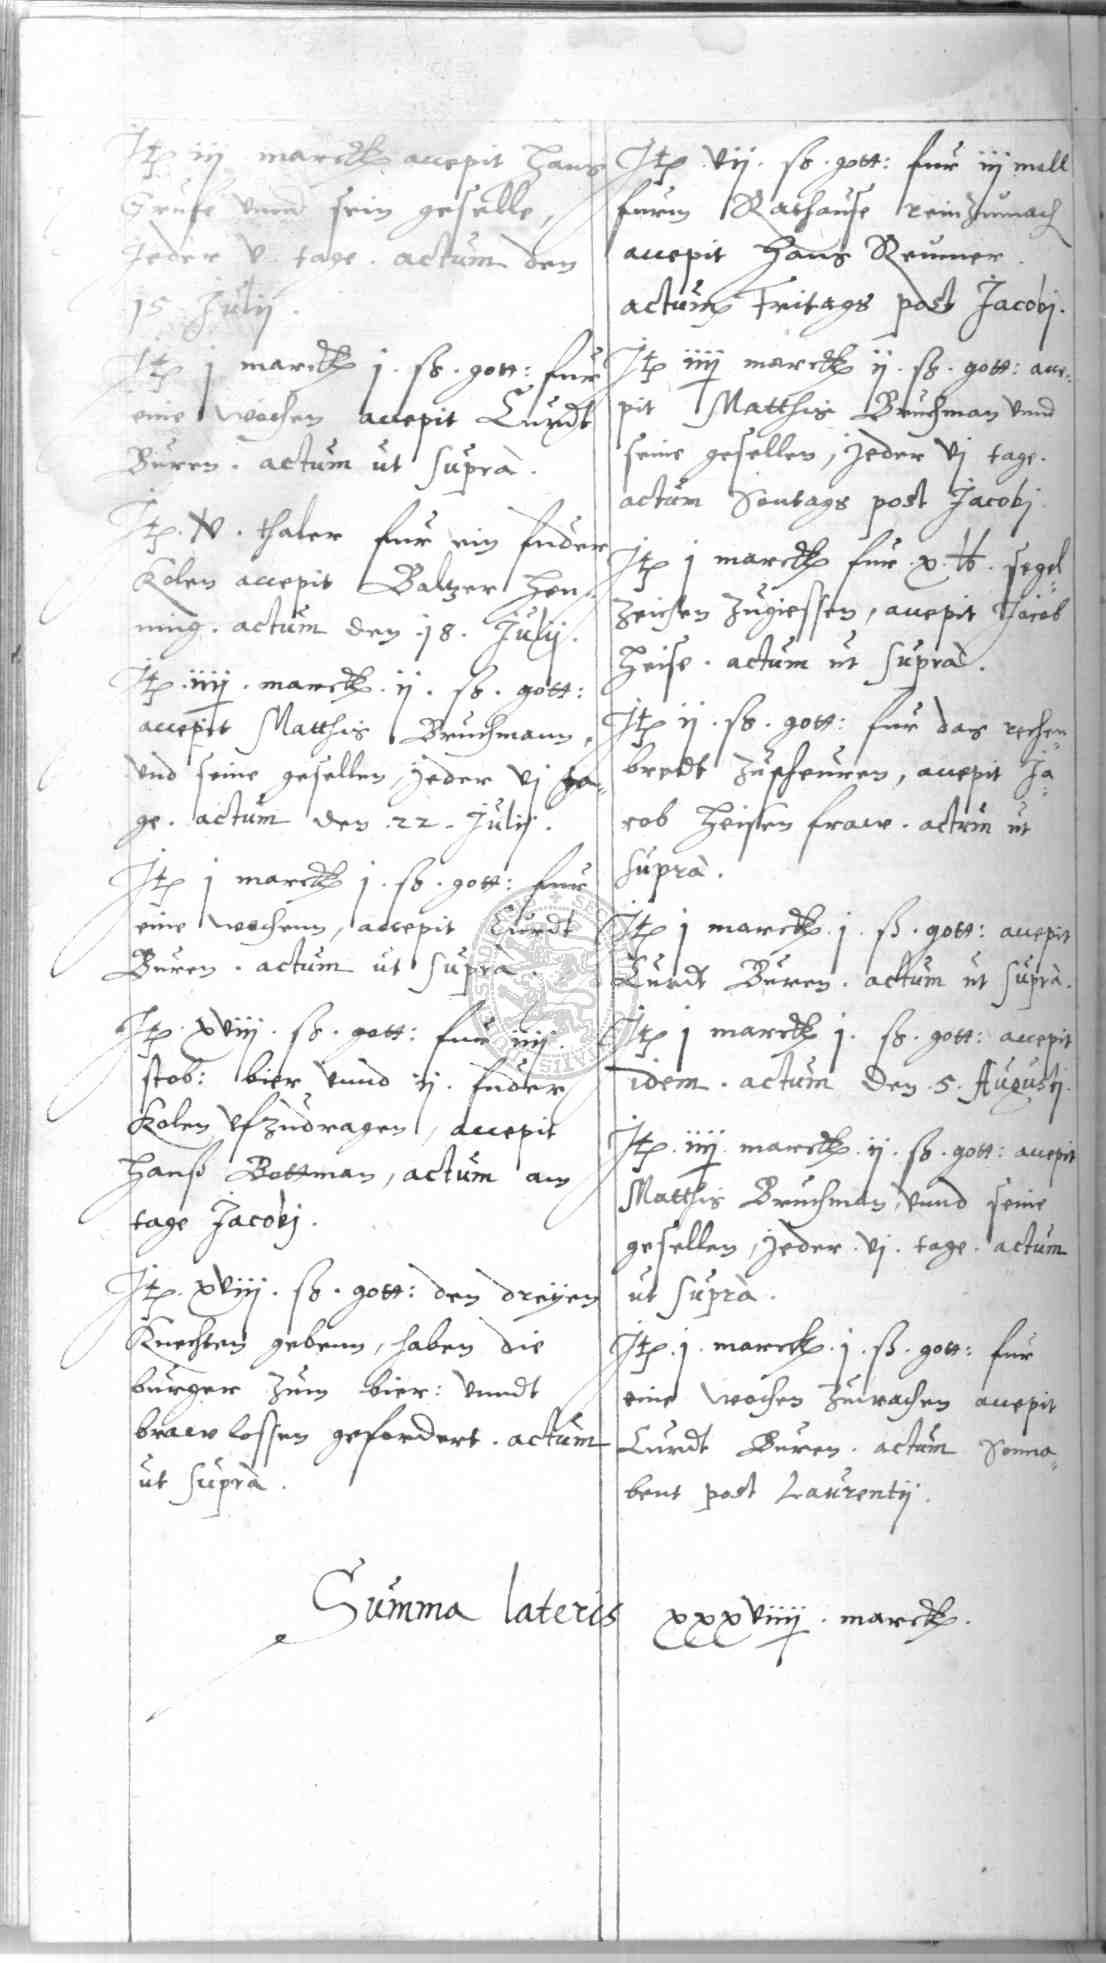 Itp iij marck accepit Hans
Grufe vnnd sein geselle,
Jeder v tage. actum den
15 Julij.
Itp j marck j. ß. gott: fur
eine wochen accepit Curdt
Buren. actum ut supra.
Itp. v. thaler fur ein fuder
Kolen accepit Baltzer Hen,
ning. actum den .18. Julij.
Itp. iiij. marck. ij. ß. gott:
accepit Matthis Bruchmann,
vnd seine gesellen, Jeder vj ta=
ge. actum den .22. Julij.
Itp j marck j. ß. gott: fur
eine wochenn, accepit Curdt
Buren. actum ut supra.
Itp. xviij. ß. gott: fur iiij.
stob: bier vnnd ij. fuder
Kolen vfzudragen, accepit
Hanß Bottman, actum am
tage Jacobj.
Itp. xviij. ß. gott: den dreyen
Knechten gebenn, haben die
burger zum bier: vnndt
braw lossen gefordert. actum
ut supra.
Itp. vij. ß. gott: fur iij mall
furm Rathause rein zumach
accepit Hans Remmer.
actum Fritags post Jacobj.
Itp iiij marck ij. ß. gott: acce=
pit Matthis Bruchman vnnd
seine gesellen, Jeder vj tage.
actum Sontags post Jacobj.
Itp j marck fur .x. lb. segel=
zeichen zugiessen, accepit Jacob
Heise. actum ut supra.
Itp ij. ß. gott: fur das rechen=
bredt zuscheuren, accepit Ja=
cob Heisen fraw. actum ut
supra.
Itp j marck. j. ß. gott: accepit
Curdt Buren. actum ut supra.
Itp j marck j. ß. gott: accepit
idem. actum den .5. Augustj.
Itp. iiij. marck. ij. ß. gott: accepit
Matthis Bruchman, vnnd seine
gesellen, Jeder .vj. tage. actum
ut supra.
Itp. j. marck. j. ß. gott: fur
eine wochen zuwachen accepit
Curdt Buren. actum Sonna=
bent post Laurentij.
Summa lateris xxxviiij. marck.